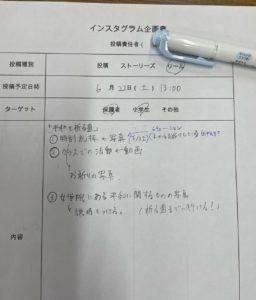 インスタグラム企画書
投稿責任者(
投稿種別 投稿 ストーリーズ リール
投稿予定日時 6月22日(土) 13:00
ターゲット 保護者 小学生 その他
「平和を祈る週」
① 特別礼拝の写真
② 今までの活動の動画
お祈りの写真
③ 女学院にある平和に関するものの写真
説明もつける。
内容